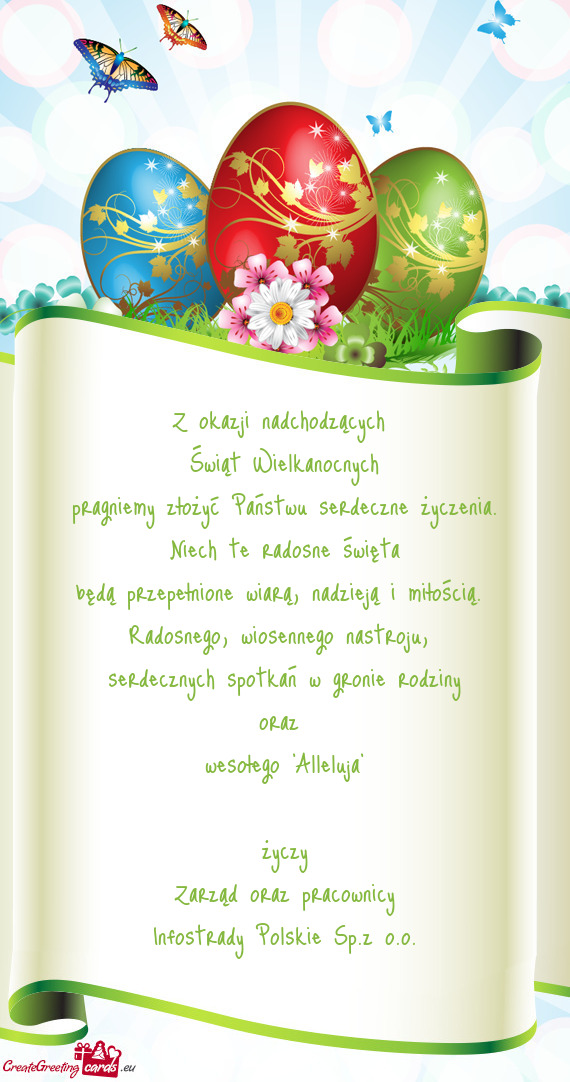 Z okazji nadchodzących
Świąt Wielkanocnych
pragniemy złożyć Państwu serdeczne życzenia.
Niech te radosne święta
będą przepełnione wiarą, nadzieją i miłością.
Radosnego, wiosennego nastroju,
serdecznych spotkań w gronie rodziny
oraz
wesołego "Alleluja"
życzy
Zarząd oraz pracownicy
Infostrady Polskie Sp.z o.o.
CreateGreeting cards .eu